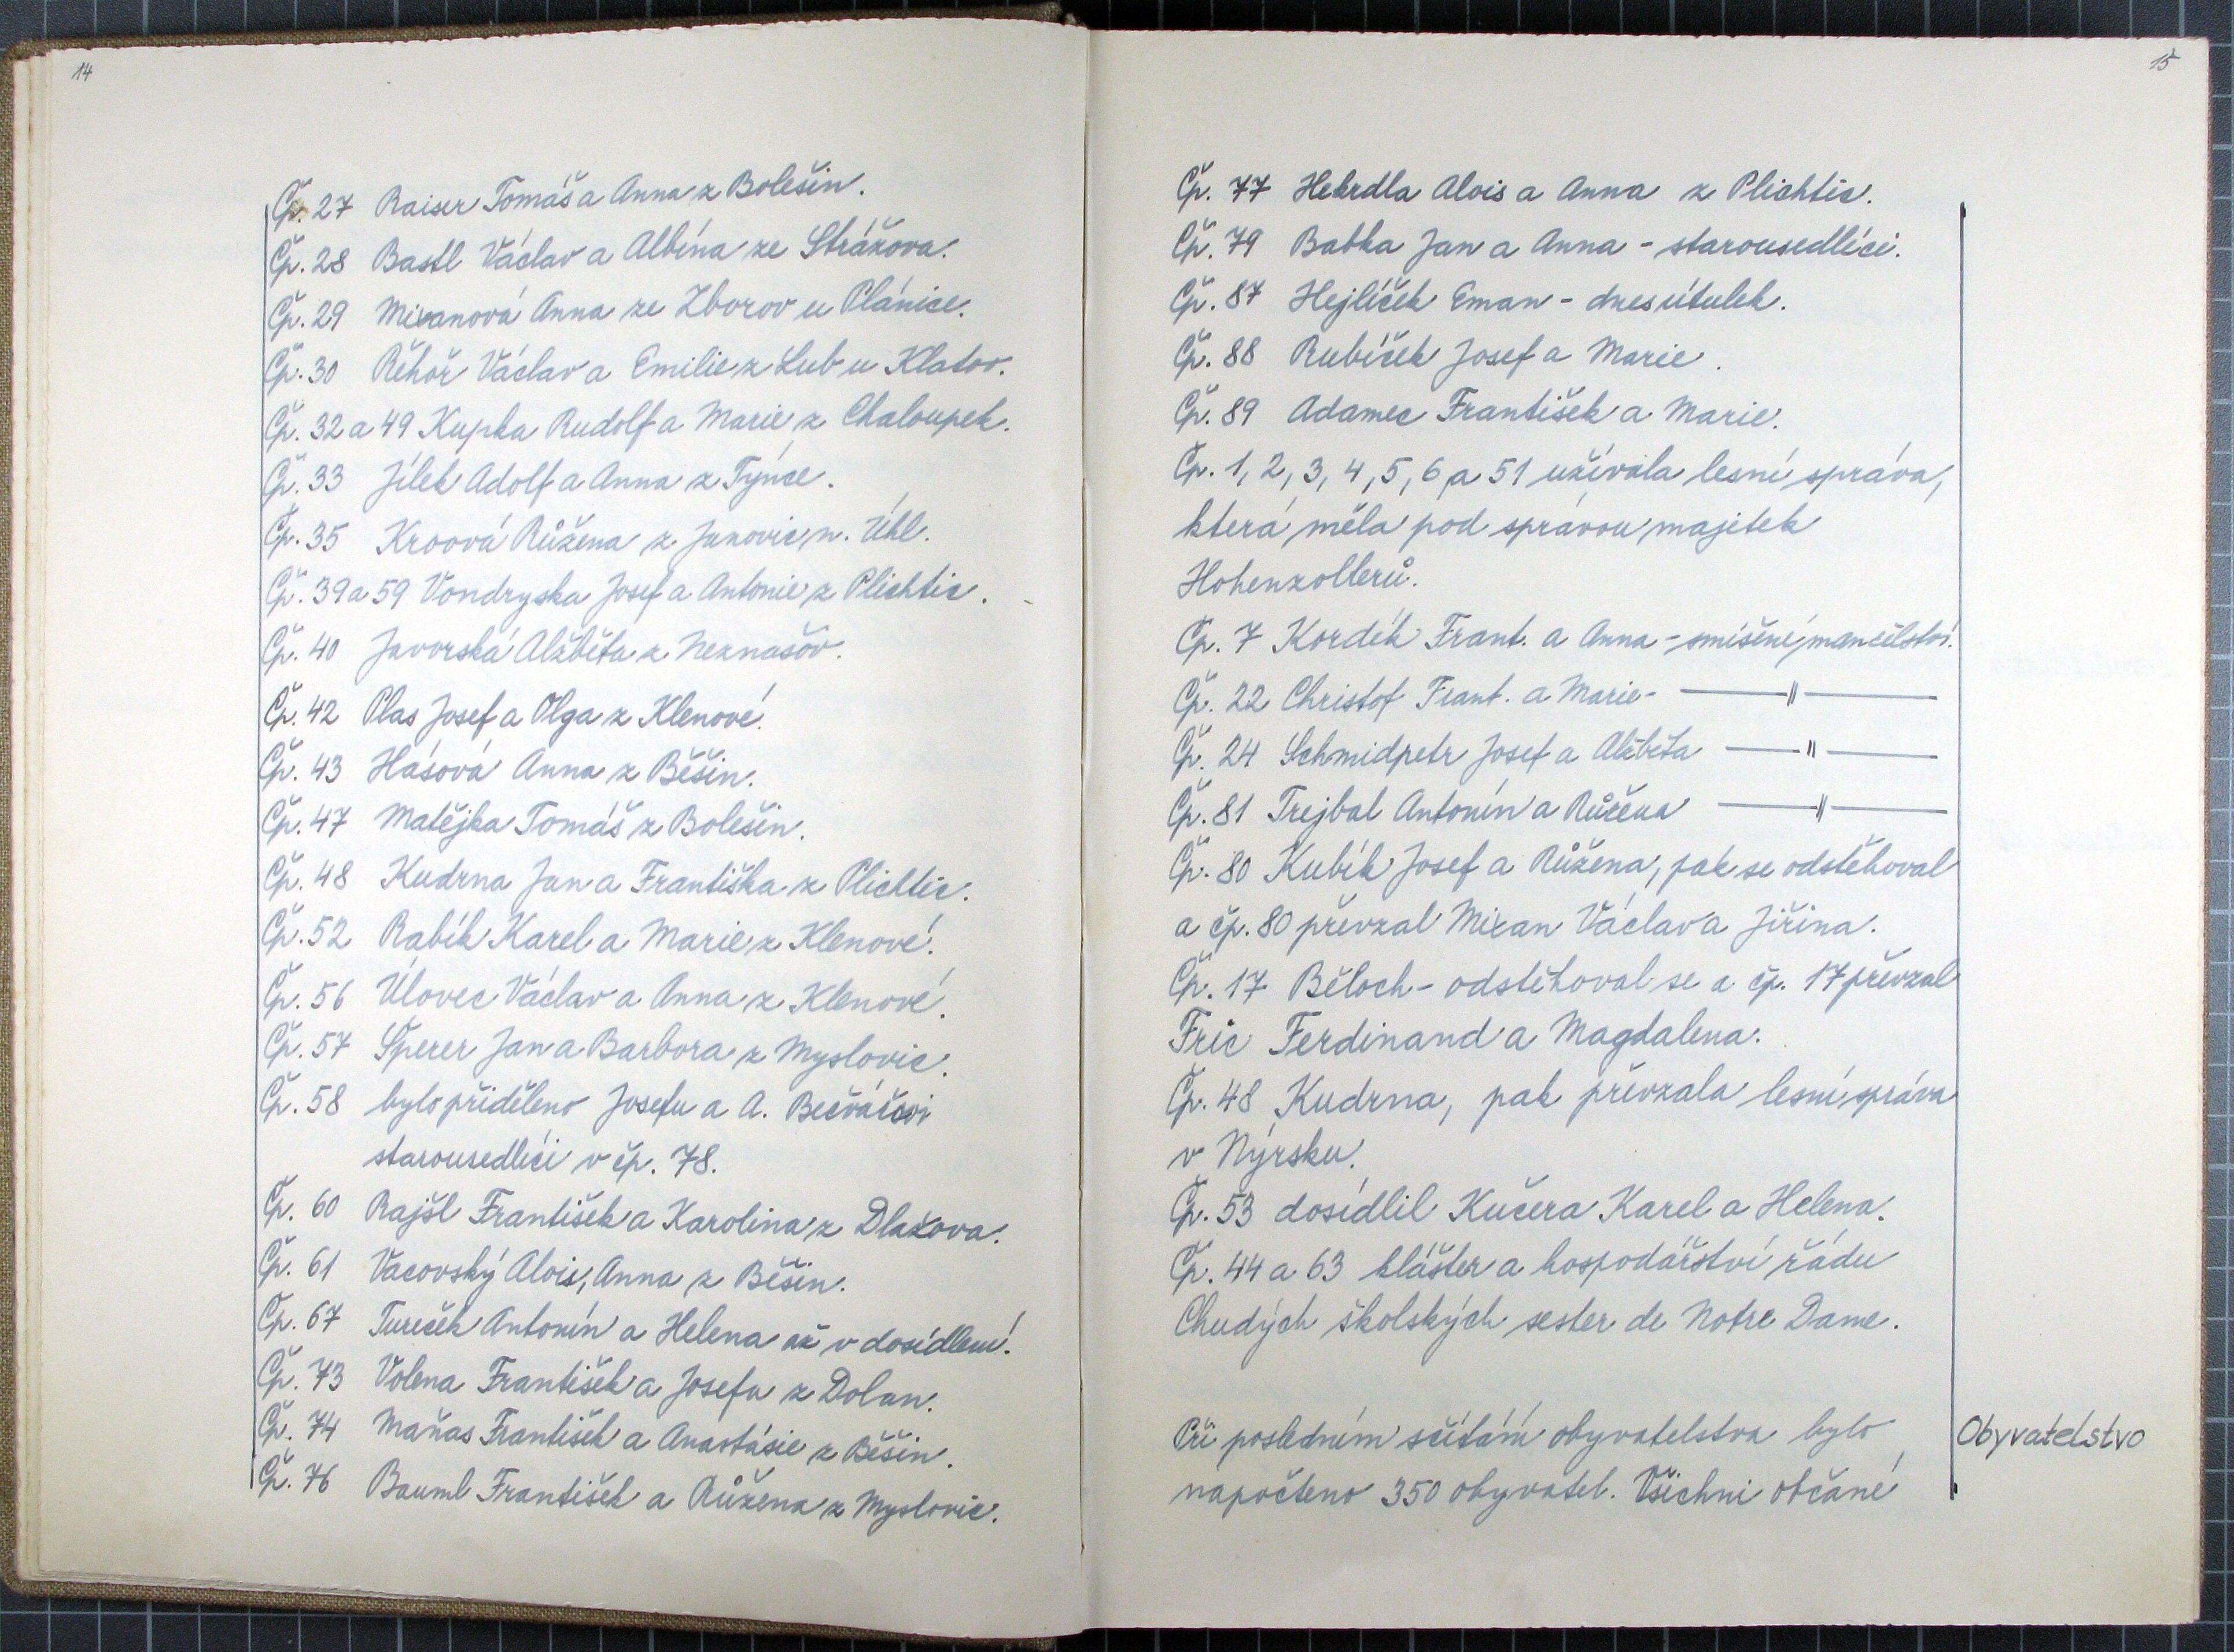 14
Čp. 27 Raiser Tomáš a Anna z Bolešin.
Čp. 28 Bastl Václav a Albína ze Strážova.
Čp. 29 Mixanová Anna ze Zborov u Plánice.
Čp. 30 Řehoř Václav a Emilie z Lub u Klatov.
Čp. 32 a 49 Kupka Rudolf a Marie z Chaloupek.
Čp. 33 Jílek Adolf a Anna z Týnce.
Čp. 35 Kroová Růžena z Janovic n. Úhl.
Čp. 39 a 59 Vondryska Josef a Antonie z Plichtic.
Čp. 40 Javorská Alžběta z Neznašov.
Čp. 42 Plas Josef a Olga z Klenové.
Čp. 43 Hásová Anna z Běšin.
Čp. 47 Matějka Tomáš z Bolešin.
Čp. 48 Kudrna Jan a Františka z Plichtic.
Čp. 52 Rabík Karel a Marie z Klenové.
Čp. 56 Úlovec Václav a Anna z Klenové.
Čp. 57 Šperer Jan a Barbora z Myslovic.
Čp. 58 bylo přiděleno Josefu a A. Bečvářovi
starousedlíci v čp. 78.
Čp. 60 Rajšl František a Karolina z Dlažova.
Čp. 61 Vacovský Alois, Anna z Běšin.
Čp. 67 Tureček Antonín a Helena až v dosídlení.
Čp. 73 Volena František a Josefa z Dolan.
Čp. 74 Maňas František a Anastásie z Běšin.
Čp. 76 Bauml František a Růžena z Myslovic.
15
Čp. 77 Hebrdla Alois a Anna z Plichtic.
Čp. 79 Babka Jan a Anna - starousedlíci.
Čp. 87 Hejlíček Eman - dnes útulek.
Čp. 88 Rubíček Josef a Marie.
Čp. 89 Adamec František a Marie.
Čp. 1, 2, 3, 4, 5, 6, a 51 užívala lesní správa,
která měla pod správou majetek
Hohenzollerů.
Čp. 7 Kordík Frant. a Anna - smíšené manželství.
Čp. 22 Christof Frant. a Marie - —— " ——
Čp. 24 Schmidpetr Josef a Alžběta —— " ——
Čp. 81 Trejbal Antonín a Růžena —— " ——
Čp. 80 Kubík Josef a Růžena, pak se odstěhoval
a čp. 80 převzal Mixan Václav a Jiřina.
Čp. 17 Běloch - odstěhoval se a čp. 17 převzal
Fric Ferdinand a Magdalena.
Čp. 48 Kudrna, pak převzala lesní správa
v Nýrsku.
Čp. 53 dosídlil Kučera Karel a Helena.
Čp. 44 a 63 klášter a hospodářství řádu
Chudých školských sester de Notre Dame.
Při posledním sčítání obyvatelstva bylo
napočteno 350 obyvatel. Všichni občané
Obyvatelstvo